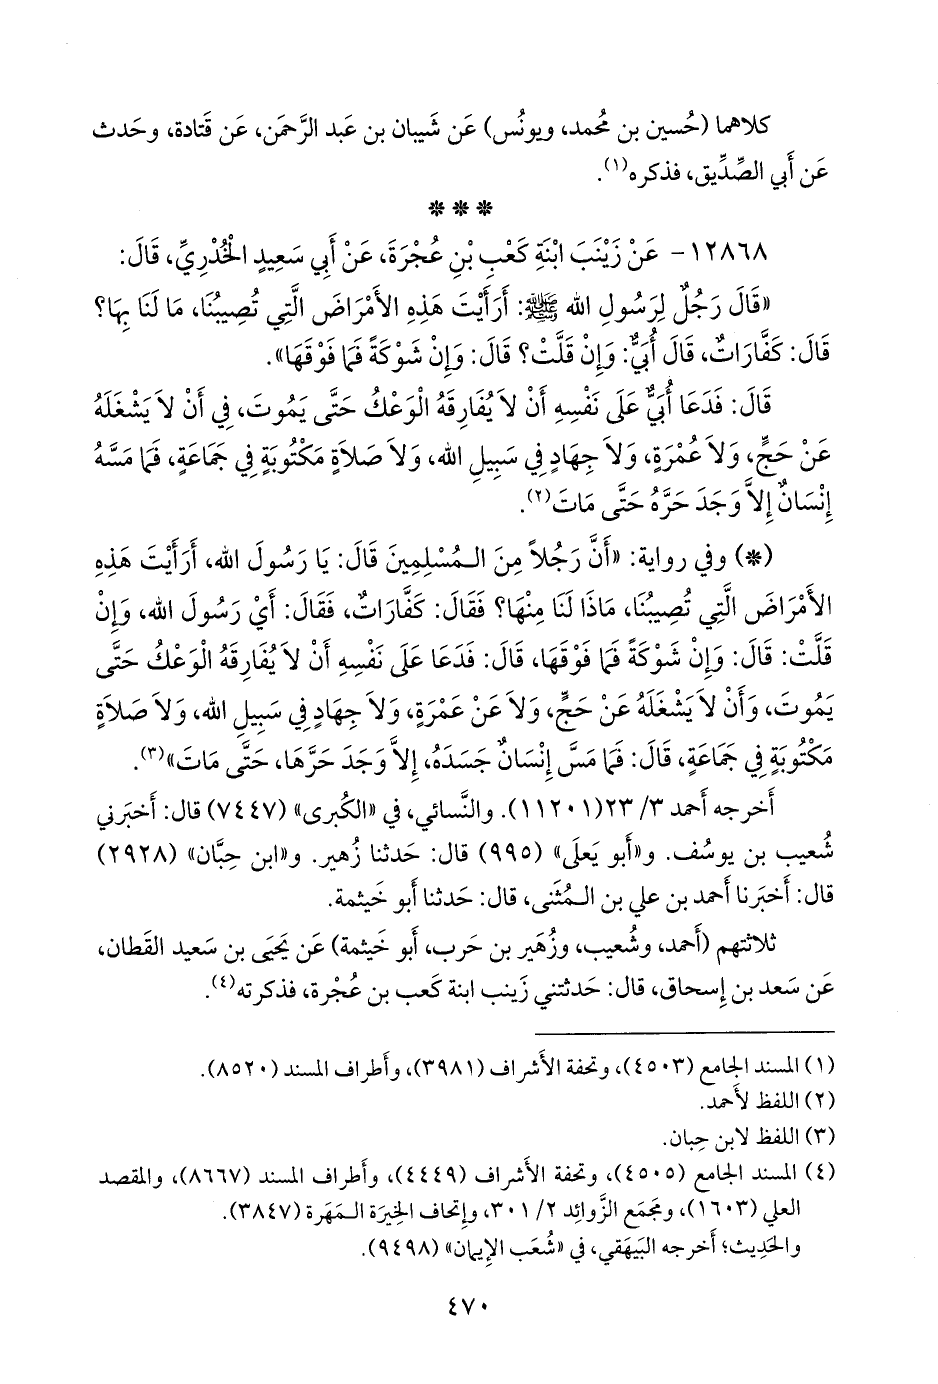 كلاهما (حُسين بن مُحمد، ويونُس) عَن شَيبان بن عَبد الرَّحمَن، عَن قَتادة، وحَدث
عَن أَبي الصِّدِّيق، فذكره(١).
* * *
١٢٨٦٨ - عَنْ زَيْنَبَ ابْنَةِ كَعْبِ بْنِ عُجْرَةَ، عَنْ أَبِي سَعِيدٍ الْخُدْرِيِّ، قَالَ:
«قَالَ رَجُلٌ لِرَسُولِ الله ﷺ: أَرَأَيْتَ هَذِهِ الأَمْرَاضَ الَّتِي تُصِيبُنَا، مَا لَنَا بِهَا؟
قَالَ: كَفَّارَاتٌ، قَالَ أُبَيٌّ: وَإِنْ قَلَّتْ؟ قَالَ: وَإِنْ شَوْكَةً فَمَا فَوْقَهَا».
قَالَ: فَدَعَا أُبَيٌّ عَلَى نَفْسِهِ أَنْ لاَ يُفَارِقَهُ الْوَعْكُ حَتَّى يَمُوتَ، فِي أَنْ لاَ يَشْغَلَهُ
عَنْ حَجٍّ، وَلاَ عُمْرَةٍ، وَلاَ جِهَادٍ فِي سَبِيلِ الله، وَلاَ صَلاَةٍ مَكْتُوبَةٍ فِي جَمَاعَةٍ، فَمَا مَسَّهُ
إِنْسَانٌ إِلاَّ وَجَدَ حَرَّهُ حَتَّى مَاتَ(٢).
(*) وفي رواية: «أَنَّ رَجُلاً مِنَ الـمُسْلِمِينَ قَالَ: يَا رَسُولَ الله، أَرَأَيْتَ هَذِهِ
الأَمْرَاضَ الَّتِي تُصِيبُنَا، مَاذَا لَنَا مِنْهَا؟ فَقَالَ: كَفَّارَاتٌ، فَقَالَ: أَيْ رَسُولَ الله، وَإِنْ
قَلَّتْ: قَالَ: وَإِنْ شَوْكَةً فَمَا فَوْقَهَا، قَالَ: فَدَعَا عَلَى نَفْسِهِ أَنْ لاَ يُفَارِقَهُ الْوَعْكُ حَتَّى
يَمُوتَ، وَأَنْ لاَ يَشْغَلَهُ عَنْ حَجٍّ، وَلاَ عَنْ عَمْرَةٍ، وَلاَ جِهَادٍ فِي سَبِيلِ الله، وَلاَ صَلاَةٍ
مَكْتُوبَةٍ فِي جَمَاعَةٍ، قَالَ: فَمَا مَسَّ إِنْسَانٌ جَسَدَهُ، إِلاَّ وَجَدَ حَرَّهَا، حَتَّى مَاتَ»(٣).
أَخرجه أَحمد ٣/ ٢٣(١١٢٠١). والنَّسائي، في «الكُبرى» (٧٤٤٧) قال: أَخبَرني
شُعيب بن يوسُف. و«أَبو يَعلَى» (٩٩٥) قال: حَدثنا زُهير. و«ابن حِبَّان» (٢٩٢٨)
قال: أَخبَرنا أَحمد بن علي بن الـمُثنى، قال: حَدثنا أَبو خَيثمة.
ثلاثتهم (أَحمد، وشُعيب، وزُهَير بن حَرب، أَبو خَيثمة) عَن يَحيَى بن سَعيد القَطان،
عَن سَعد بن إِسحاق، قال: حَدثتني زَينب ابنة كَعب بن عُجْرة، فذكرته(٤).
(١) المسند الجامع (٤٥٠٣)، وتحفة الأَشراف (٣٩٨١)، وأَطراف المسند (٨٥٢٠).
(٢) اللفظ لأَحمد.
(٣) اللفظ لابن حِبان.
(٤) المسند الجامع (٤٥٠٥)، وتحفة الأَشراف (٤٤٤٩)، وأَطراف المسند (٨٦٦٧)، والمقصد
العلي (١٦٠٣)، ومَجمَع الزَّوائِد ٢/ ٣٠١، وإِتحاف الخِيرَة الـمَهَرة (٣٨٤٧).
والحَدِيث؛ أَخرجه البَيهَقي، في «شُعَب الإِيمان» (٩٤٩٨).
٤٧٠